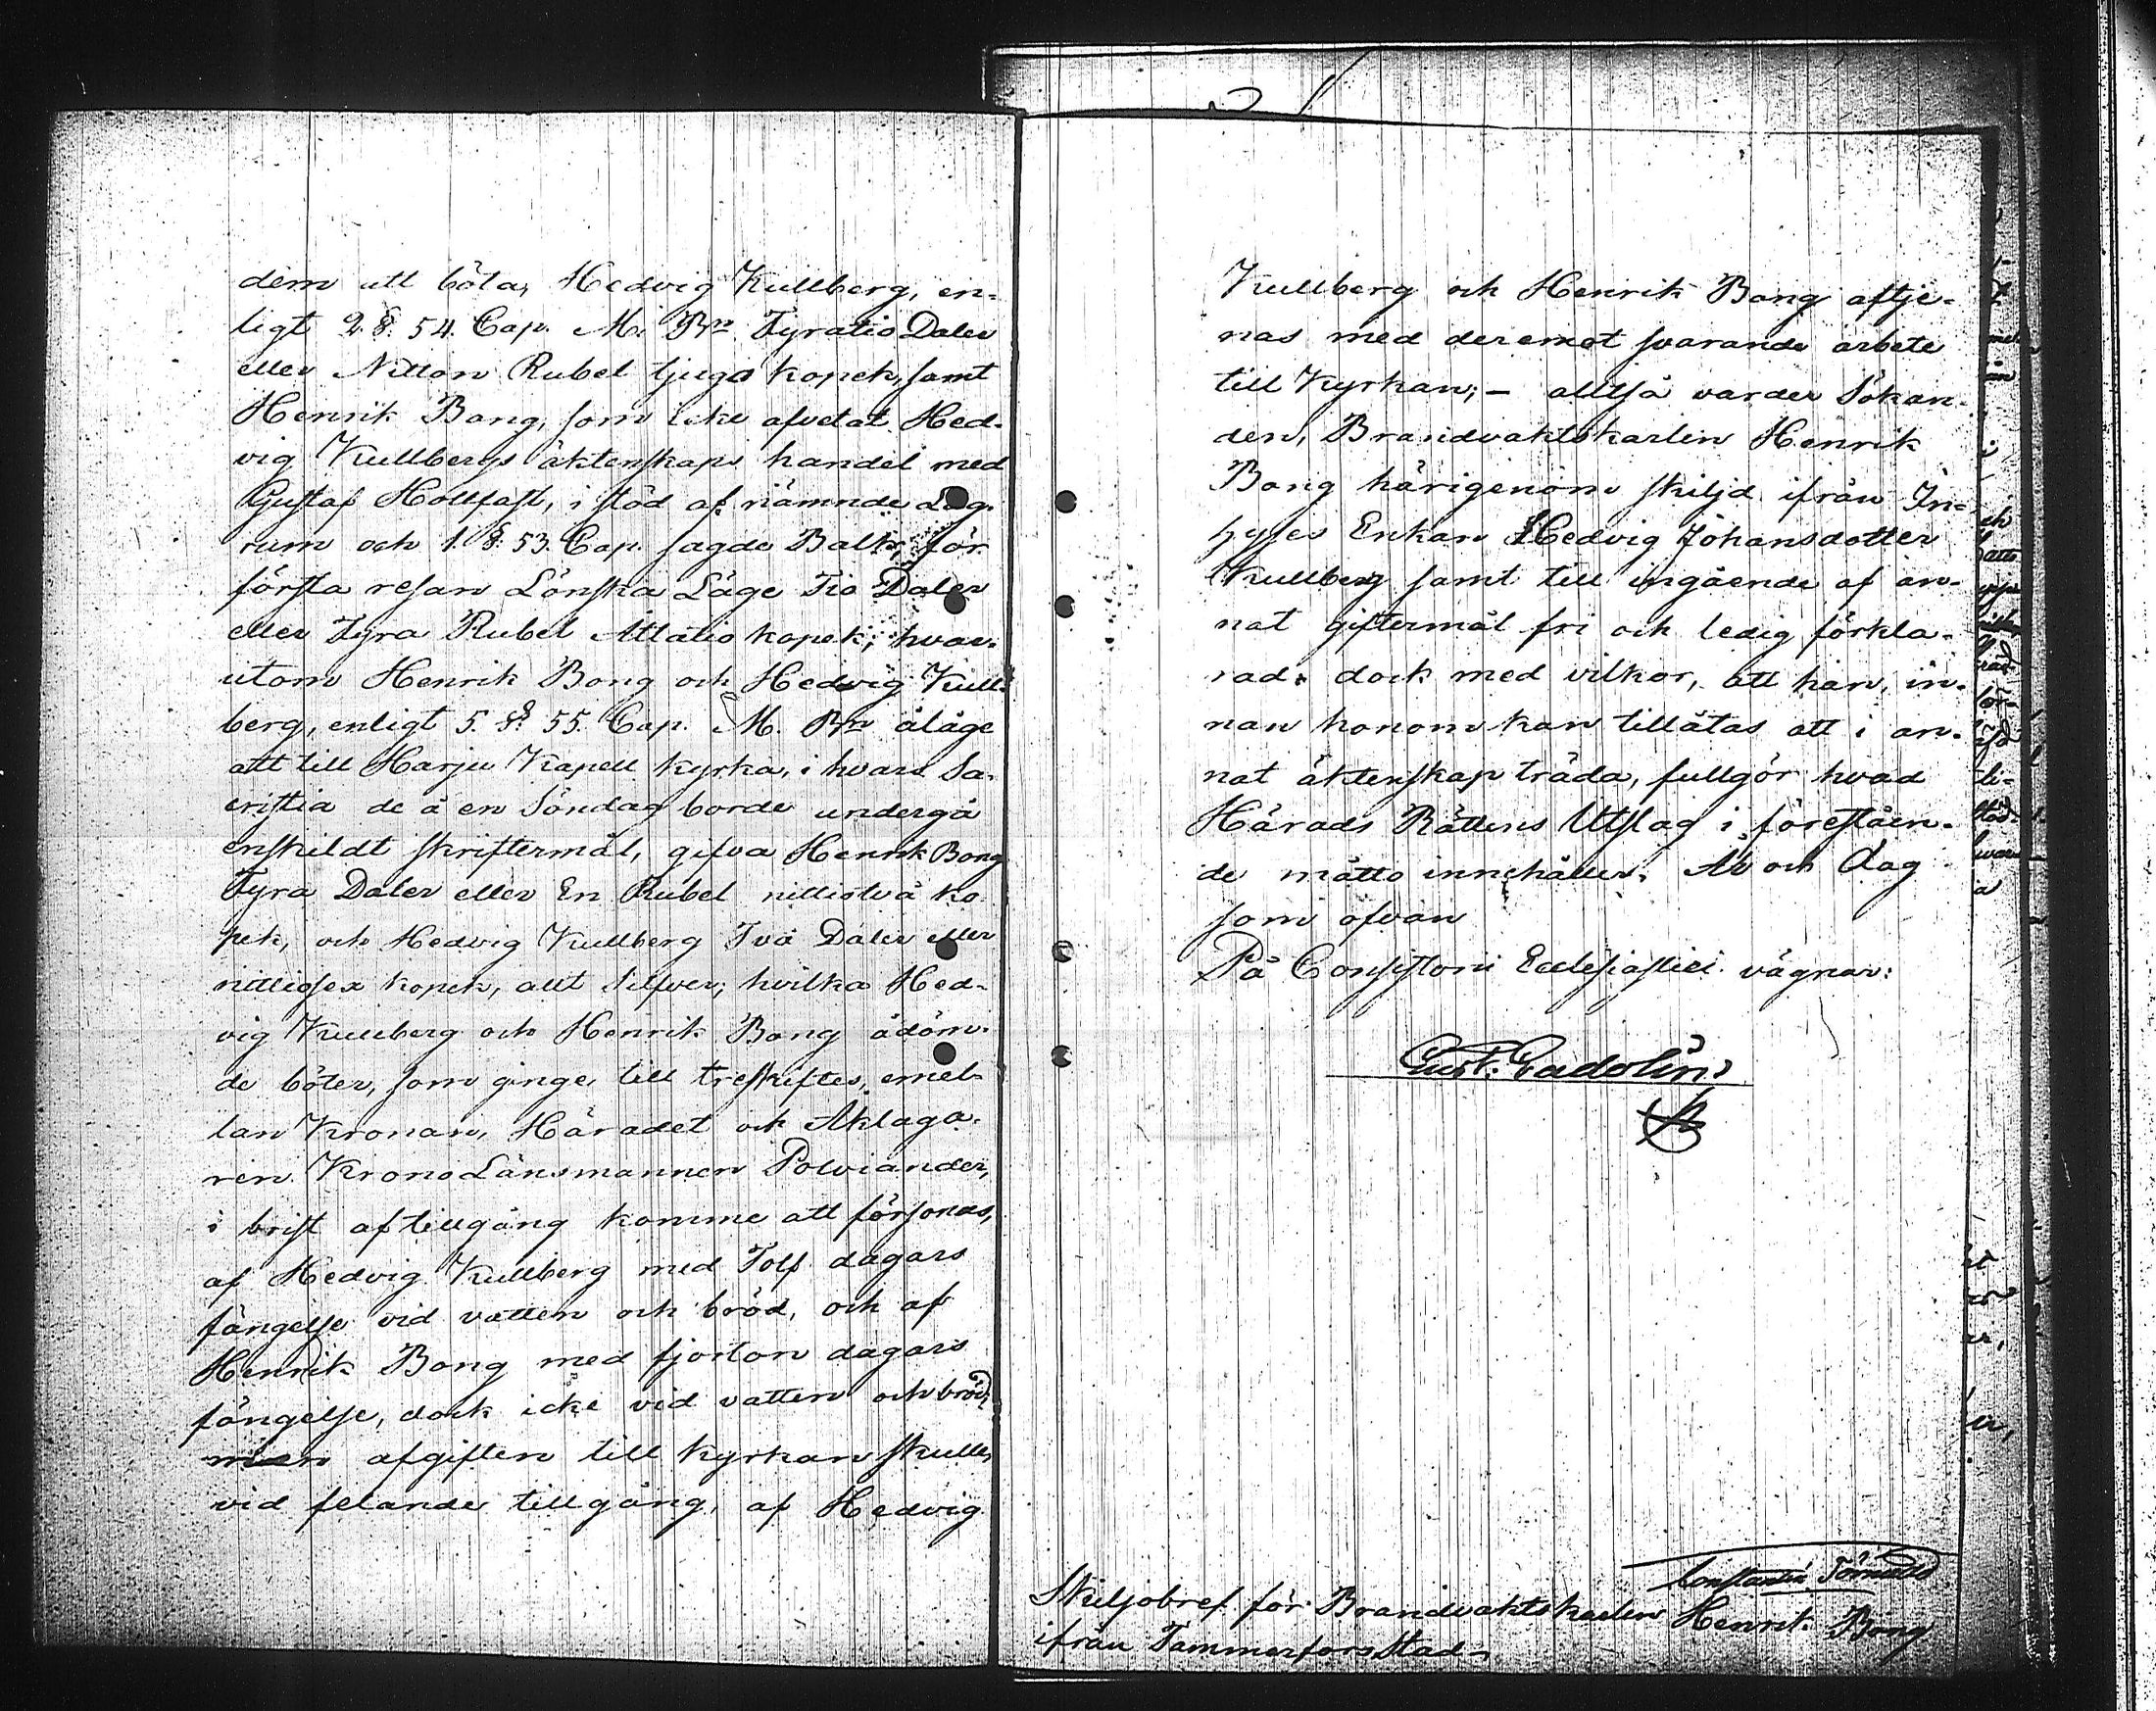 dem att böta, Hedvig Kullberg, en-
ligt 2. §. 54. Cap. M. Bn Fyratio Daler
eller Nitton Rubel tjugo kopek, samt
Henrik Bang, som icke afvetat Hed-
vig Kullbergs äktenskaps handel med
Gustaf Hollfast, i stöd af nämnde Lag-
rum och 1. §. 53. Cap. sagde Balk, för
första resan Lönska Läge Tio Daler
eller Fyra Rubel Åttatio kopek; hvar-
utom Henrik Bong och Hedvig Kull-
berg, enligt 5. §. 55. Cap. M. Bn ålåge
att till Harju Kapell kyrka, i hvars Sa-
cristia de å en Söndag borde undergå
enskildt skriftermål, gifva Henrik Bong
Fyra Daler eller En Rubel nittiotvå ko-
pek, och Hedvig Kullberg Två Daler eller
nittiosex kopek, allt Silfver; hvilka Hed-
vig Kullberg och Henrik Bong ådöm-
de böter, som ginge till treskiftes, emel-
lan Kronan, Häradet och Åklaga-
ren KronoLänsmannen Polviander,
i brist af tillgång komme att försonas,
af Hedvig Kullberg med Tolf dagars
fängelse vid vatten och bröd, och af
Henrik Bong med fjorton dagars
fängelse, dock icke vid vatten och bröd;
men afgiften till kyrkan skulle,
vid felande tillgång, af Hedvig
Kullberg och Henrik Bong aftje-
nas med deremot svarande arbete
till Kyrkan; – alltså varder Sökan-
den, Brandvaktskarlen Henrik
Bong härigenom skiljd ifrån In-
hyses Enkan Hedvig Johansdotter
Kullberg samt till ingående af an-
nat giftermål fri och ledig förkla-
rad, dock med vilkor, att han, in-
nan honom kan tillåtas att i an-
nat äktenskap träda, fullgör hvad
Härads Rättens Utslag i föreståen-
de måtto innehåller. År och dag
som ofvan
På Consistorii Ecclesiastici vägnar:
Gust. Gadolin
Constantin Törnudd
Skiljobref för Brandvaktskarlen Henrik Bong
ifrån Tammerfors Stad